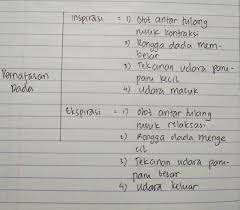 Inspirasi = 1) Otot antar tulang
rusuk kontraksi
2) Rongga dada mem-
besar
3) Tekanan udara paru-
paru kecil
4) Udara masuk
Pernafasan
Dada
Ekspirasi = 1) Otot antar tulang
rusuk relaksasi
2) Rongga dada menge
cil
3) Tekanan udara paru-
paru besar
4) Udara keluar